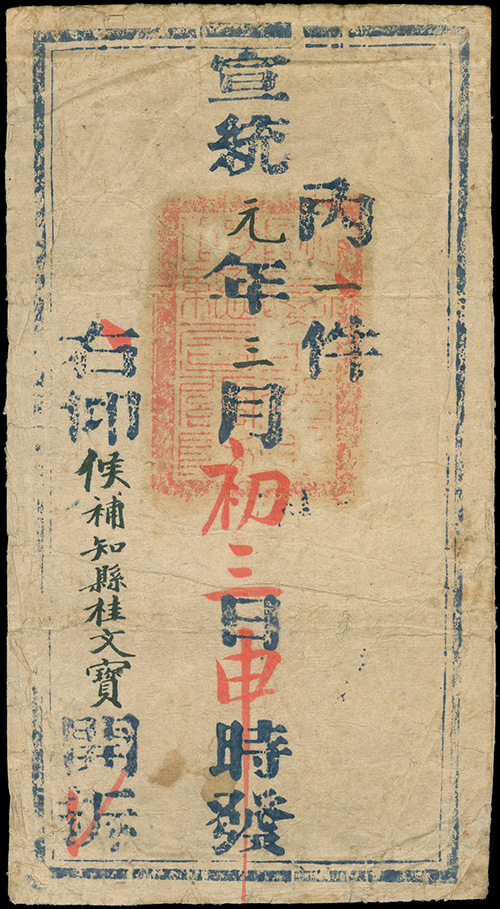 内一件
宣統元年三月初三日申時發
右仰候補知縣桂文寶開拆